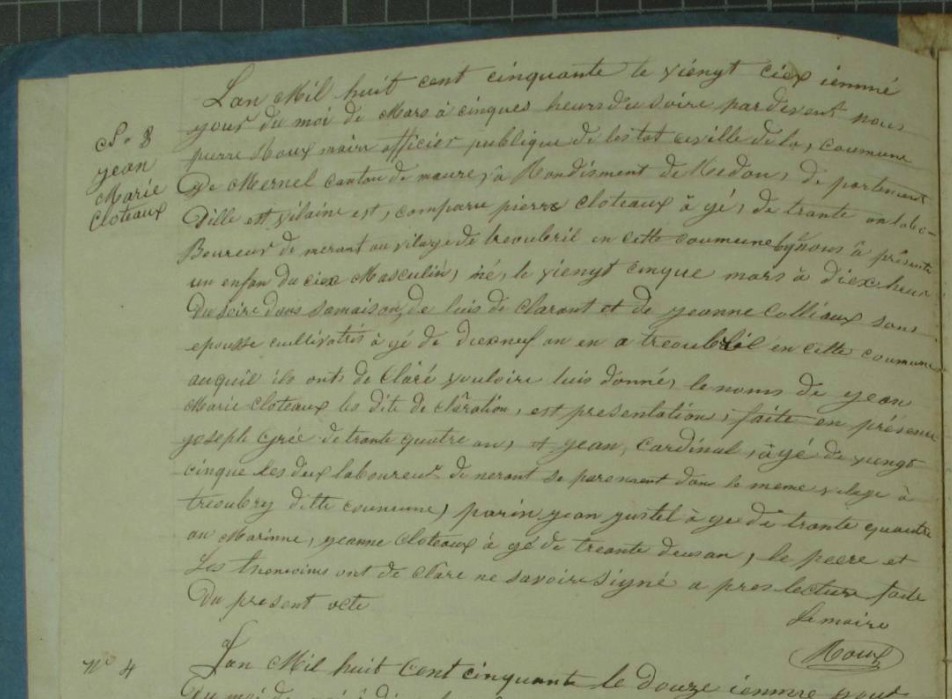 Lan Mil huit cent cinquante le vienyt ciex iemme
N° 8
jour du moi de Mars à cinques heurs du soire par devent nous
yean
pierre Roux mairr officier publique de lestat ceville de la, coumune
Marie
De Mernel canton de maure, a Rondisment de Redon, di partenient
Cloteaux
Dille est vilaine est, comparu pierre cloteaux à yé, de trante
Boureur de merant au vilaye de treoubril en cette coumune nous à présenté
un enfan du ciex Masculin, né, le vienyt cinque mars à diex heur
Du soire dans samaison, de luis de clarant et de yeanne Colliaux sons
epousse cultivatris à yé de diexneuf an en a treoubril en cette coumune
auquil ils onts de claré vouloire luis donné, le noms de yean
Marie cloteaux les dite de clération, est présentation, faite en présence
yoseph Grié de trante quatre an, et yean, Cardinal, âyé de
cinque les deux laboureur de merant dans le meme vilage à
treoubry ditte coumune, parin yean yustel à ye de trante quautre
an Marinne, yeanne Cloteaux à yé de treante deusan, le peere et
Les ont de clare ne savoire signé a pres lecture faite
Du present acte
Le maire
Roux
N° 4
Lan Mil huit cent cinquante le douze iemme